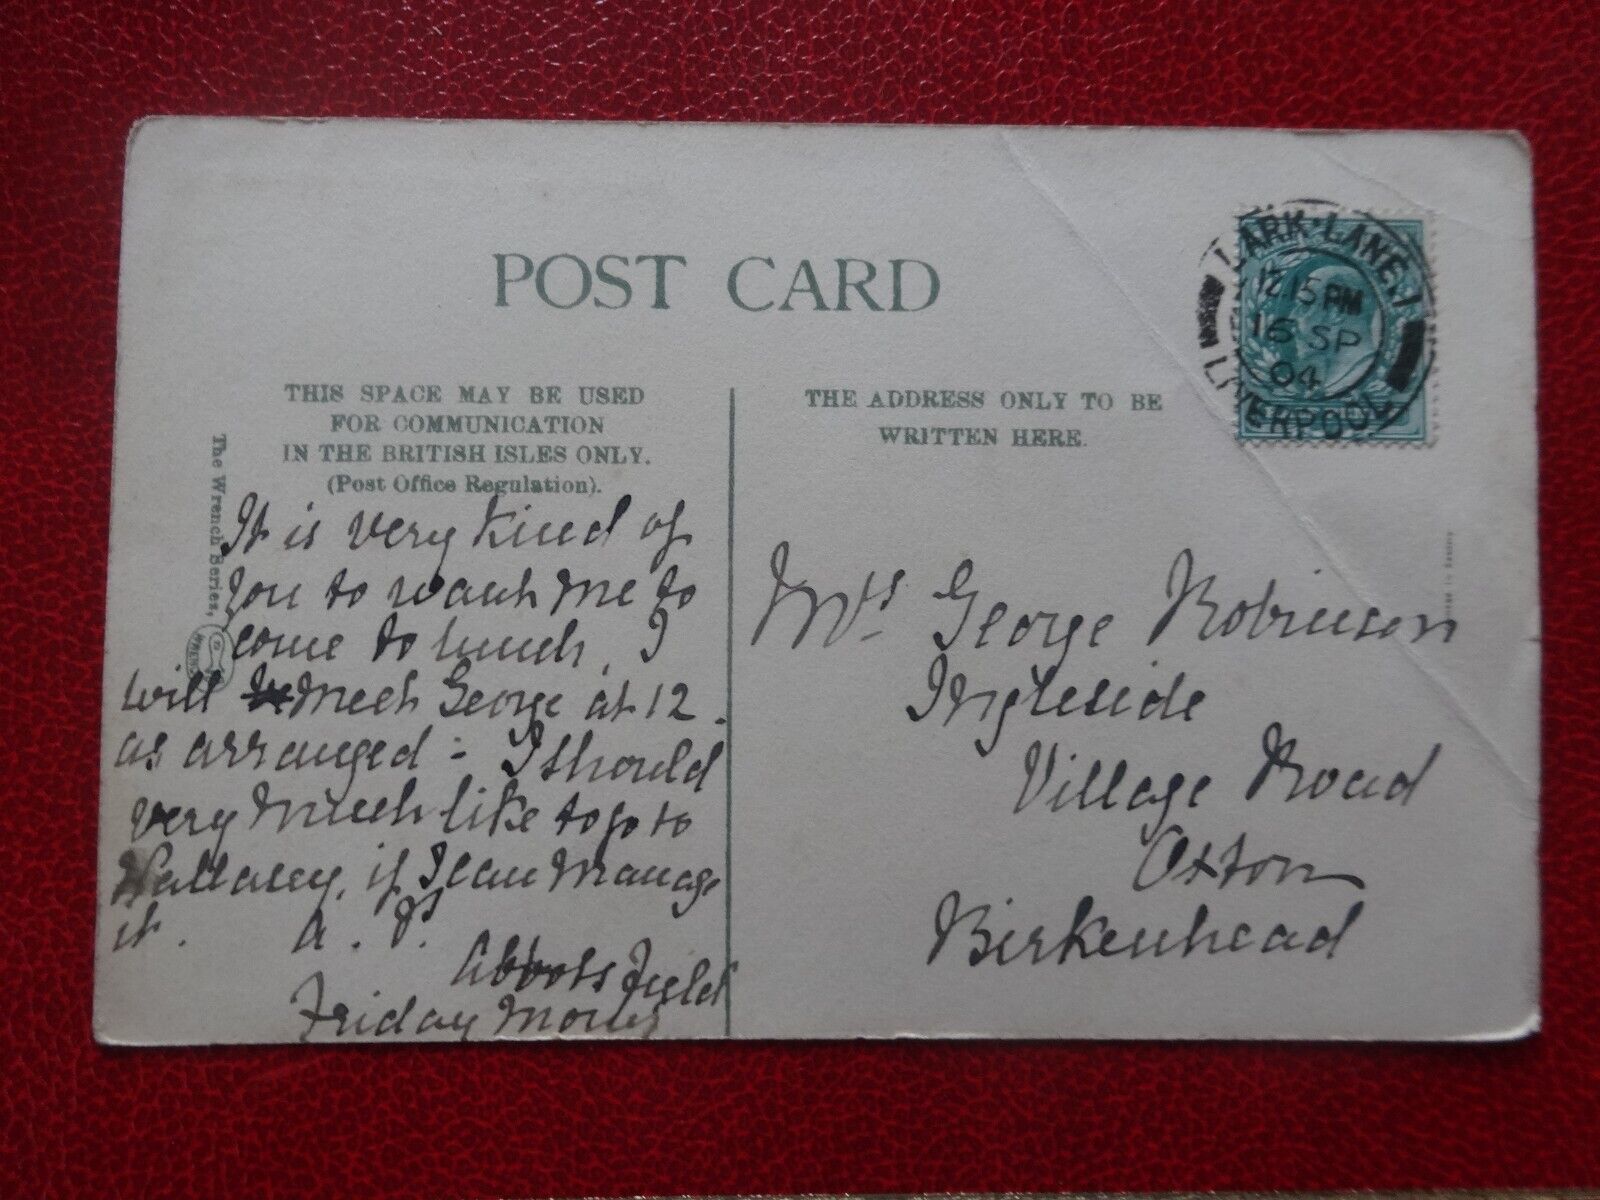 POST CARD
THIS SPACE MAY BE USED
FOR COMMUNICATION
IN THE BRITISH ISLES ONLY.
(Post Office Regulation).
The Wrench Series,
WRENCH
It is very kind of
you to want me to
come to lunch, I
will meet George at 12.
as arranged - I should
very much like to go to
Wallasey, if I can manage
it.
Abbotsfield
Friday Morng
THE ADDRESS ONLY TO BE
WRITTEN HERE.
LARK·LANE.
12.15 PM
16 SP
04
LIVERPOOL
Mrs George Robinson
Ingleside
Village Road
Oxton
Birkenhead